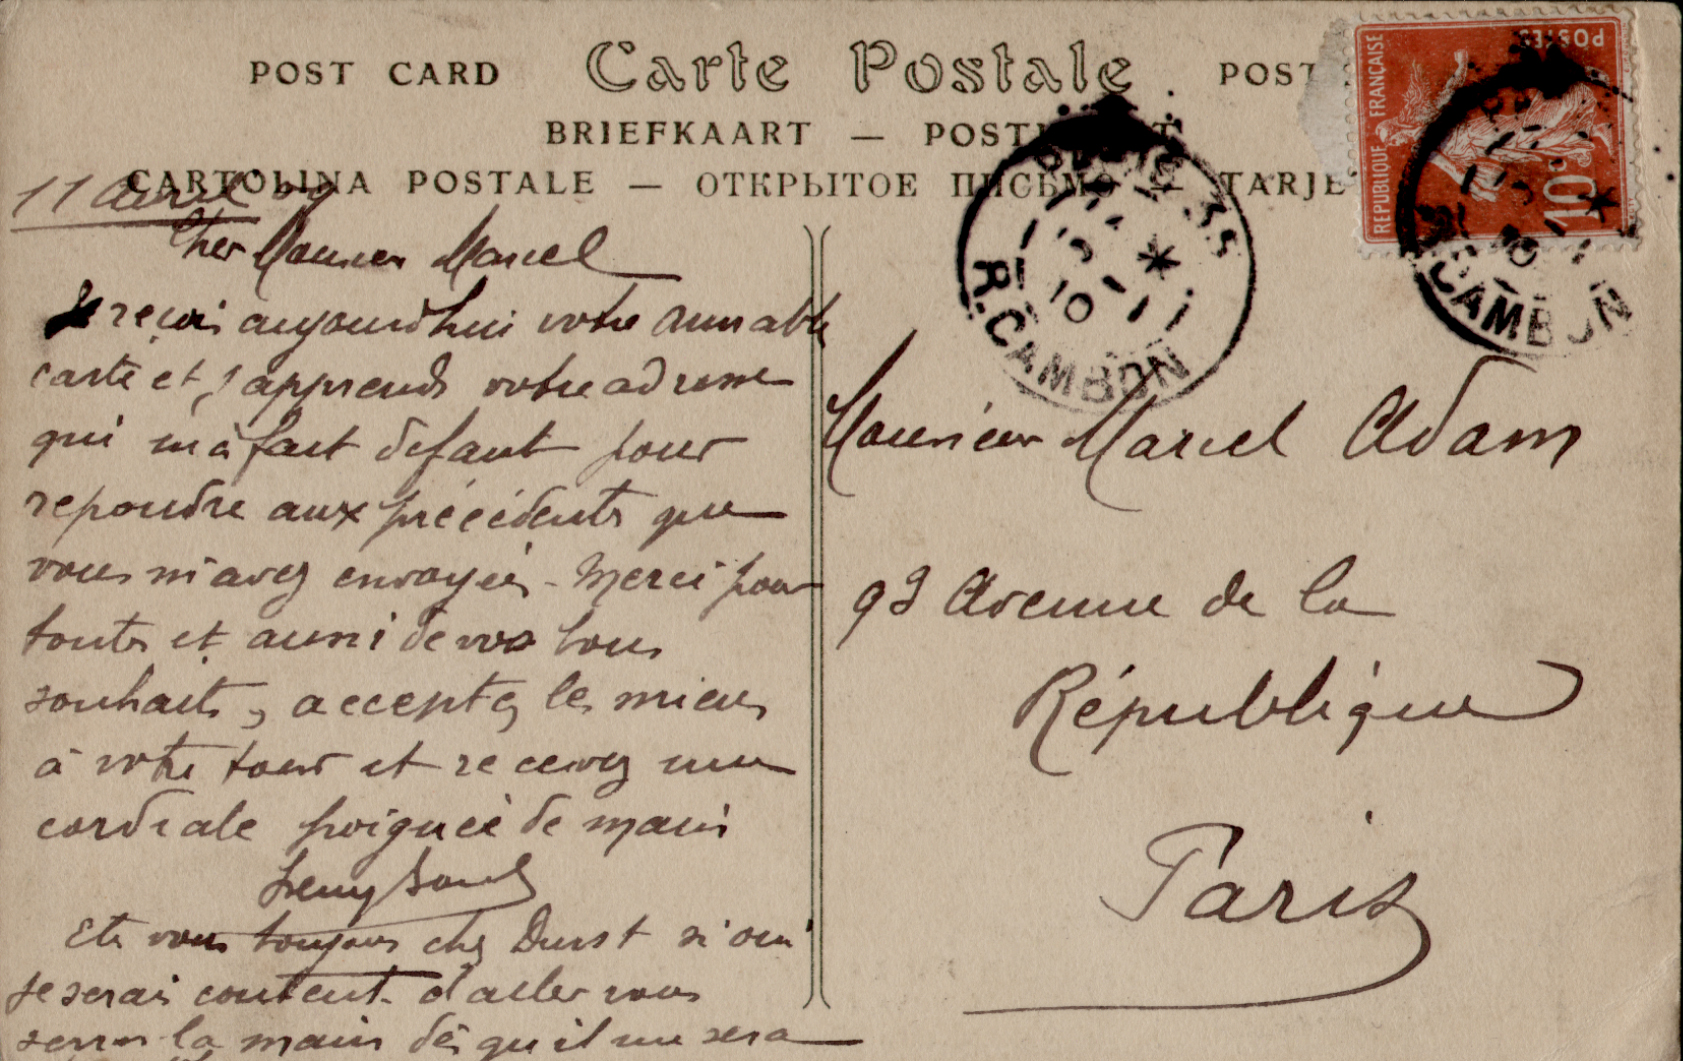 POST CARD Carte Postale POST
BRIEFKAART — POSTK
CARTOLINA POSTALE — ОТКРЫТОЕ ПИСЬМО — TARJE
REPUBLIQUE FRANÇAISE
POSTES
10c
PARIS 35
R. CAMBON
CAMBON
11 avril
Cher Monsieur Marcel
Je reçois aujourd'hui votre aimable
carte et j'apprends votre adresse
qui m'a fait defaut pour
repondre aux précédents que
vous m'avez envoyées - Merci pour
toutes et aussi de vos bons
souhaits, acceptez les miens
à votre tour et recevez une
cordiale poignée de main
Etes vous toujours chez Durst si oui
je serais content d'aller vous
serrer la main dès qu'il me sera
Monsieur Marcel Adam
93 Avenue de la
République
Paris